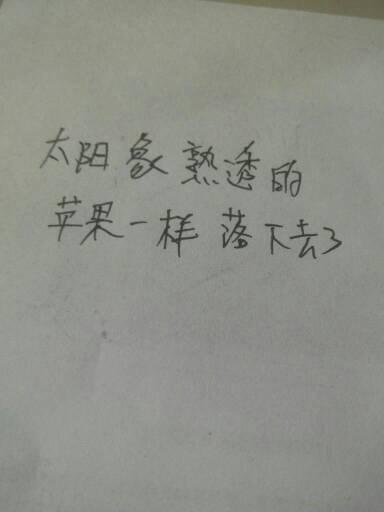 太阳象熟透的
苹果一样落下去了